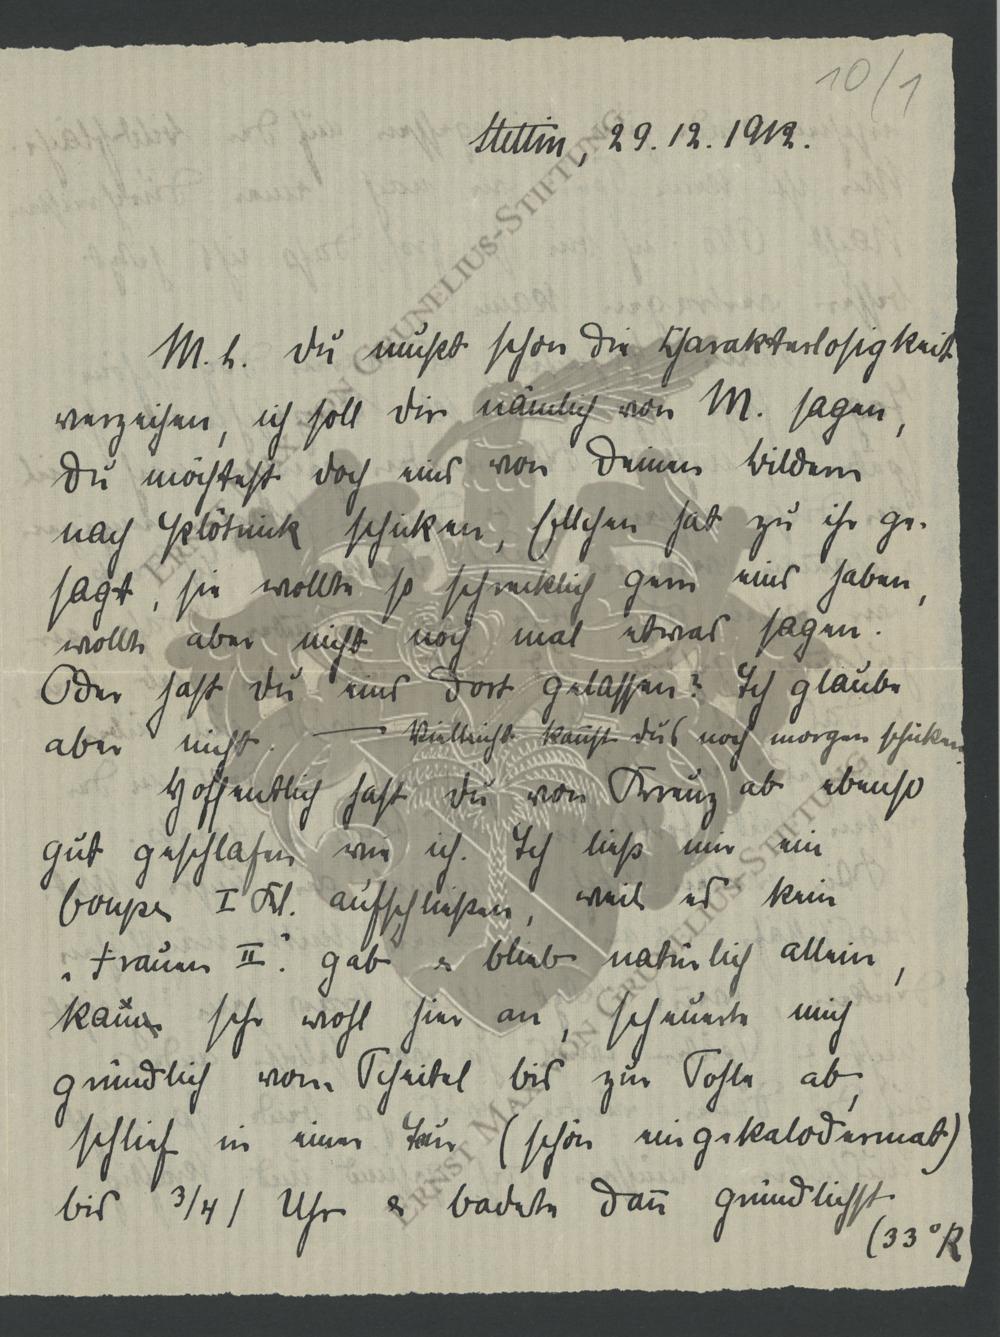 10/1
Stettin, 29.12.1912.
M. L. Du mußt schon die Charakterlosigkeit
verzeihen, ich soll dir nämlich von M. sagen,
Du möchtest doch eins von Deinen Bildern
nach Klötnick schicken, Ellchen hat zu ihr ge-
sagt, sie wollte so schrecklich gern eins haben,
wollte aber nicht noch mal etwas sagen.
Oder hast Du eins dort gelassen? Ich glaube
aber nicht. — Vielleicht kannst dus noch morgen schicken.
Hoffentlich hast du von Kreuz ab ebenso
gut geschlafen wie ich. Ich ließ mir ein
Coupee I Kl. aufschließen, weil es kein
„Frauen II“. gab & blieb natürlich allein,
kam sehr wohl hier an, scheuerte mich
gründlich vom Scheitel bis zur Sohle ab,
schlief in einer Tour (schön eingekalodermat)
bis 3/4 1 Uhr & badete dann gründlichst
(33° R
ERNST MAX VON GRUNELIUS-STIFTUNG
ERNST MAX VON GRUNELIUS-STIFTUNG